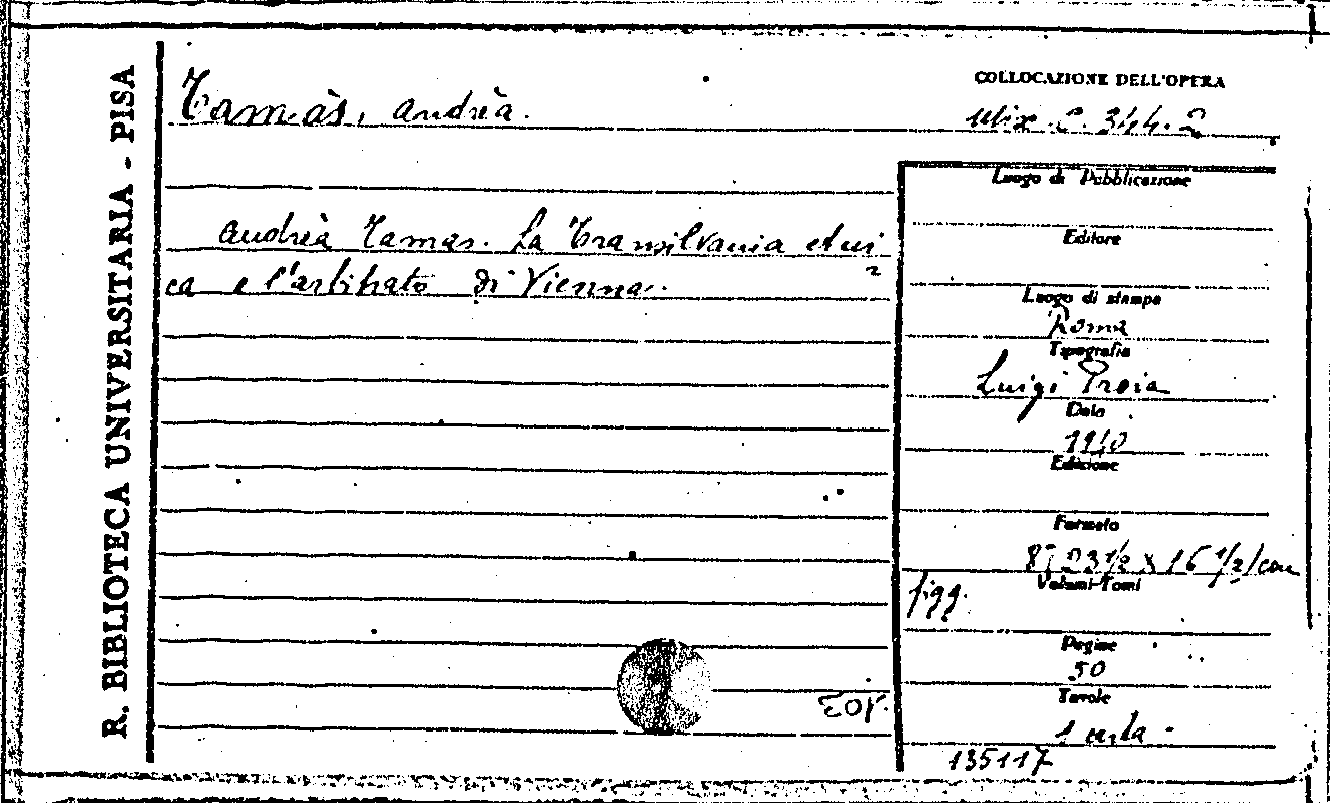 R. BIBLIOTECA UNIVERSITARIA - PISA
Tamàs, Andrèa.
COLLOCAZIONE DELL'OPERA
Mix. C. 344. 2
Andrèa Tamas. La Transilvania etni
ca e l'arbitrato di Vienna.
Luogo di Pubblicazione
Editore
Luogo di stampa
Roma
Tipografia
Luigi Proia
Data
1940
Edizione
Formato
8°, 23 1/2 x 16 1/2/con
figg.
Volumi-Tomi
Pagine
50
Tavole
1 carta
135117